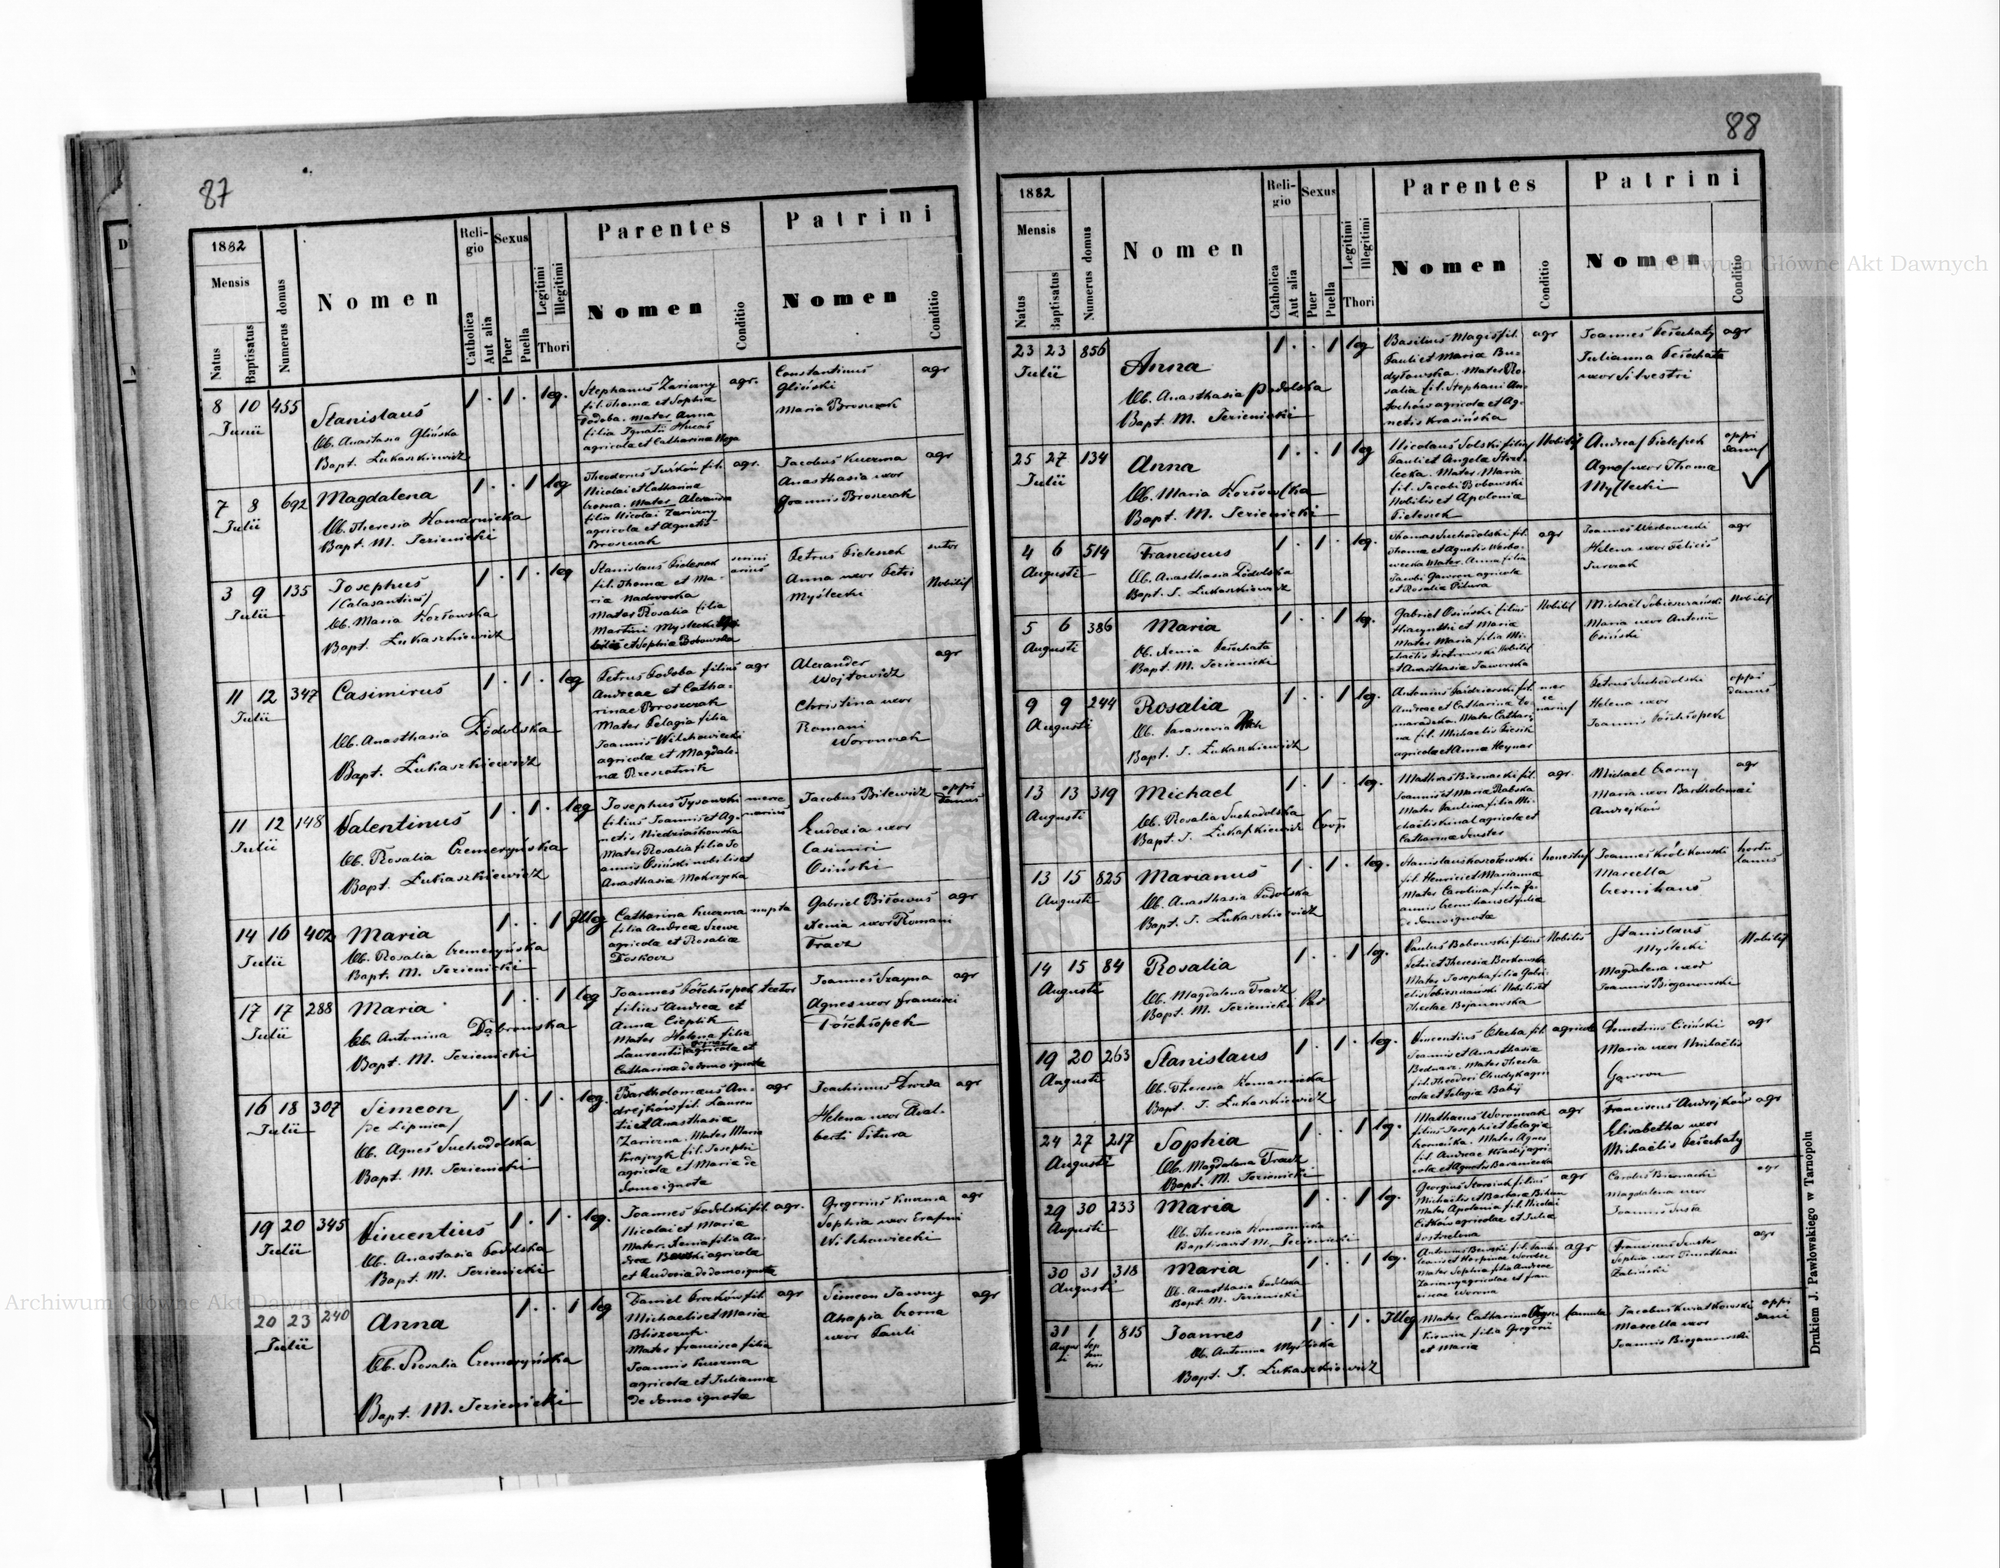 87
1882
Mensis
Natus
Baptisatus
Numerus domus
Nomen
Religio
Catholica
Aut alia
Sexus
Puer
Puella
Legitimi
Illegitimi
Thori
Parentes
Nomen
Conditio
Patrini
Nomen
Conditio
8 10 455
Junii
Stanislaus
Ob. Anastasia Glińska
Bapt. Łukaszkiewicz
1 . 1 . leg.
Stephanus Zariczny
fil. Thomae et Sophia
Podoba. Mater Anna
filia Ignatii
agricolae et Catharina
agr.
Constantinus
Gliński
Maria Broszczak
agr
7 8 692
Julii
Magdalena
Ob. Theresia Komarnicka
Bapt. M. Jezienicki
1 . . 1 leg
Theodorus
Nicolai et Catharina
Mater Alexandra
filia Nicolai Zariczny
agricola et Agnetis
Broszczak
agr.
Jacobus Kuczma
Anasthasia uxor
Joannis Broszczak
agr
3 9 135
Julii
Josephus
/Calasantius/
Ob. Maria Kozłowska
Bapt. Łukaszkiewicz
1 . 1 . leg
Stanislaus Pieleszek
fil. Thomae et Ma-
ria Nadworska
Mater Rosalia filia
Martini Myslecki
et Sophia Bobowska
Petrus Pieleszek
Anna uxor Petri
Myślecki
sutor
Nobilis
11 12 347
Julii
Casimirus
Ob. Anasthasia Podolska
Bapt. Łukaszkiewicz
1 . 1 . leg
Petrus Podoba filius
Andreae et Catha-
rinae Broszczak
Mater Pelagia filia
Joannis Witchowiecki
agricolae et Magdale-
nae
agr
Alexander
Wojtowicz
Christina uxor
Romani
Woronczak
agr
11 12 148
Julii
Valentinus
Ob. Rosalia Czemeryńska
Bapt. Łukaszkiewicz
1 . 1 . leg
Josephus Tysowski
filius Joannis et Ag-
netis Niedziałkowska
Mater Rosalia filia Jo
annis Osiński nobilis et
Anasthasia Mokrzycka
merce
narius
Jacobus Bilewicz
Eudoxia uxor
Casimiri
Osiński
oppi
danus
14 16 402
Julii
Maria
Ob. Rosalia Czemeryńska
Bapt. M. Jezienicki
1 . . 1 Illeg
Catharina Kuczma nupta
filia Andreae
agricola et Rosalia
Gabriel Biłowus
Xenia uxor Romani
Tracz
agr
17 17 288
Julii
Maria
Ob. Antonina Dąbrowska
Bapt. M. Jezienicki
1 . . 1 leg
Joannes Połchłopek
filius Andreae et
Anna Cieplik
Mater Helena filia
Laurentii agricolae et
Catharina de domo ignota
Joannes Szayna
Agnes uxor Francisci
Połchłopek
agr
16 18 307
Julii
Simeon
/de Lipnica/
Ob. Agnes Suchodolska
Bapt. M. Jezienicki
1 . 1 . leg.
Bartholomaeus An-
drejków fil. Lauren
tii et Anasthasia
Zariczna. Mater Maria
fil. Josephi
agricola et Maria de
domo ignota
agr
Joachimus
Helena uxor Adal-
berti Pitura
agr
19 20 345
Julii
Vincentius
Ob. Anastasia Podolska
Bapt. M. Jezienicki
1 . 1 . leg.
Joannes Podolski fil.
Nicolai et Maria
Mater Xenia filia An-
dreae agricola
et Eudoxia de domo ignota
agr.
Gregorius Kuczma
Sophia uxor
Witchowiecki
agr
20 23 240
Julii
Anna
Ob. Rosalia Czemeryńska
Bapt. M. Jezienicki
1 . . 1 leg
Daniel fil.
Michaelis et Maria
Mater Francisca filia
Joannis Kuczma
agricolae et Julianna
de domo ignota
agr
Simeon Jawny
Ahapia Czorna
uxor Pauli
agr
88
1882
Mensis
Natus
Baptisatus
Numerus domus
Nomen
Religio
Catholica
Aut alia
Sexus
Puer
Puella
Legitimi
Illegitimi
Thori
Parentes
Nomen
Conditio
Patrini
Nomen
Conditio
23 23 856
Julii
Anna
Ob. Anasthasia Podolska
Bapt. M. Jezienicki
1 . . 1 leg
Basilius fil.
Pauli et Maria
Mater Ro-
salia fil. Stephani An
tochów agricola et Ag-
netis Krasińska
agr
Joannes Pełechaty
Julianna Pełechata
uxor Silvestri
agr
25 27 134
Julii
Anna
Ob. Maria Kozłowska
Bapt. M. Jezienicki
1 . . 1 leg
Nicolaus Solski filius
Pauli et Angela
Mater Maria
fil. Jacobi Bobowski
Nobilis et Apolonia
Pieleszek
Nobilis
Andreas Pieleszek
Agnes uxor Thoma
Myslecki
oppi
danus
4 6 514
Augusti
Franciscus
Ob. Anasthasia Podolska
Bapt. J. Łukaszkiewicz
1 . 1 . leg.
Thomas Suchodolski fil.
Thomae et Agnetis Werbo-
wecka Mater Anna filia
Jacobi Gawron agricola
et Rosalia Pitura
agr
Joannes Werbowecki
Helena uxor Felicis
Jurczak
agr
5 6 386
Augusti
Maria
Ob. Xenia Pełechata
Bapt. M. Jezienicki
1 . . 1 leg.
Gabriel Osiński filius
Hiacynthi et Maria
Mater Maria filia Mi-
chaelis Piotrowski Nobilis
et Anasthasia Jaworska
Nobilis
Michael Sobieszczański
Maria uxor Antonii
Osiński
Nobilis
9 9 244
Augusti
Rosalia
Ob. Parascevia
Bapt. J. Łukaszkiewicz
1 . . 1 leg.
Antonius fil.
Andreae et Catharina
Mater Cathari
na fil. Michaelis
agricola et Anna Heynar
Petrus Suchodolski
Helena uxor
Joannis Połchłopek
oppi
danus
13 13 319
Augusti
Michael
Ob. Rosalia Suchodolska
Bapt. J. Łukaszkiewicz Coop.
1 . 1 . leg.
Mathias Biernacki fil.
Joannis et Maria Rabska
Mater Paulina filia Mi-
chaelis agricola et
Catharina Szuster
agr.
Michael Czorny
Maria uxor Bartholomaei
Andrejków
agr
13 15 825
Augusti
Marianus
Ob. Anasthasia Podolska
Bapt. J. Łukaszkiewicz
1 . 1 . leg.
Stanislaus Koszołowski
fil. Henrici et Marianna
Mater Carolina filia Jo-
annis et Julia
de domo ignota
honestus
Joannes Królikowski
Marcella
hortu
lanus
14 15 84
Augusti
Rosalia
Ob. Magdalena Tracz
Bapt. M. Jezienicki
1 . . 1 leg.
Paulus Bobowski filius
Petri et Theresia Borkowska
Mater Josepha filia Gabri-
elis Sobieszczański Nobilis et
Theclae Bojanowska
Nobilis
Stanislaus
Myślecki
Magdalena uxor
Joannis Bieganowski
Nobilis
19 20 263
Augusti
Stanislaus
Ob. Theresia Komarnicka
Bapt. J. Łukaszkiewicz
1 . 1 . leg.
Vincentius fil.
Joannis et Anasthasia
Bednarz. Mater Thecla
fil. Theodori agri
cola et Pelagia Babij
agricola
Demetrius Cisiński
Maria uxor Michaelis
Gawron
agr
24 27 217
Augusti
Sophia
Ob. Magdalena Tracz
Bapt. M. Jezienicki
1 . . 1 leg.
Mathaeus Woronczak
filius Josephi et Pelagia
Mater Agnes
fil. Andreae agri-
cola et Agnetis Baraniecka
agr
Franciscus Andrejków
Elisabetha uxor
Michaelis Pełechaty
agr
29 30 233
Augusti
Maria
Ob. Theresia Komarnicka
Baptisavit M. Jezienicki
1 . . 1 leg.
Georgius filius
Michaelis et Barbara
Mater Apolonia fil. Nicolai
agricolae et Julia
agr
Carolus Biernacki
Magdalena uxor
Joannis
agr
30 31 318
Augusti
Maria
Ob. Anasthasia Podolska
Bapt. M. Jezienicki
1 . . 1 leg.
Antonius
Mater Sophia filia Andreae
Zariczny agricolae et Fran
ciscae Worona
agr
Franciscus Szuster
Sophia uxor Timothaei
Zaliński
agr
31 1 815
Augus
ti
Sep
tem
bris
Joannes
Ob. Antonina Myślicka
Bapt. J. Łukaszkiewicz
1 . 1 . Illeg
Mater Catharina
filia Gregorii
et Maria
famula
Jacobus Kwiatkowski
Marcella uxor
Joannis Bieganowski
oppi
dani
Drukiem J. Pawłowskiego w Tarnopolu
Archiwum Główne Akt Dawnych
Archiwum Główne Akt Dawnych